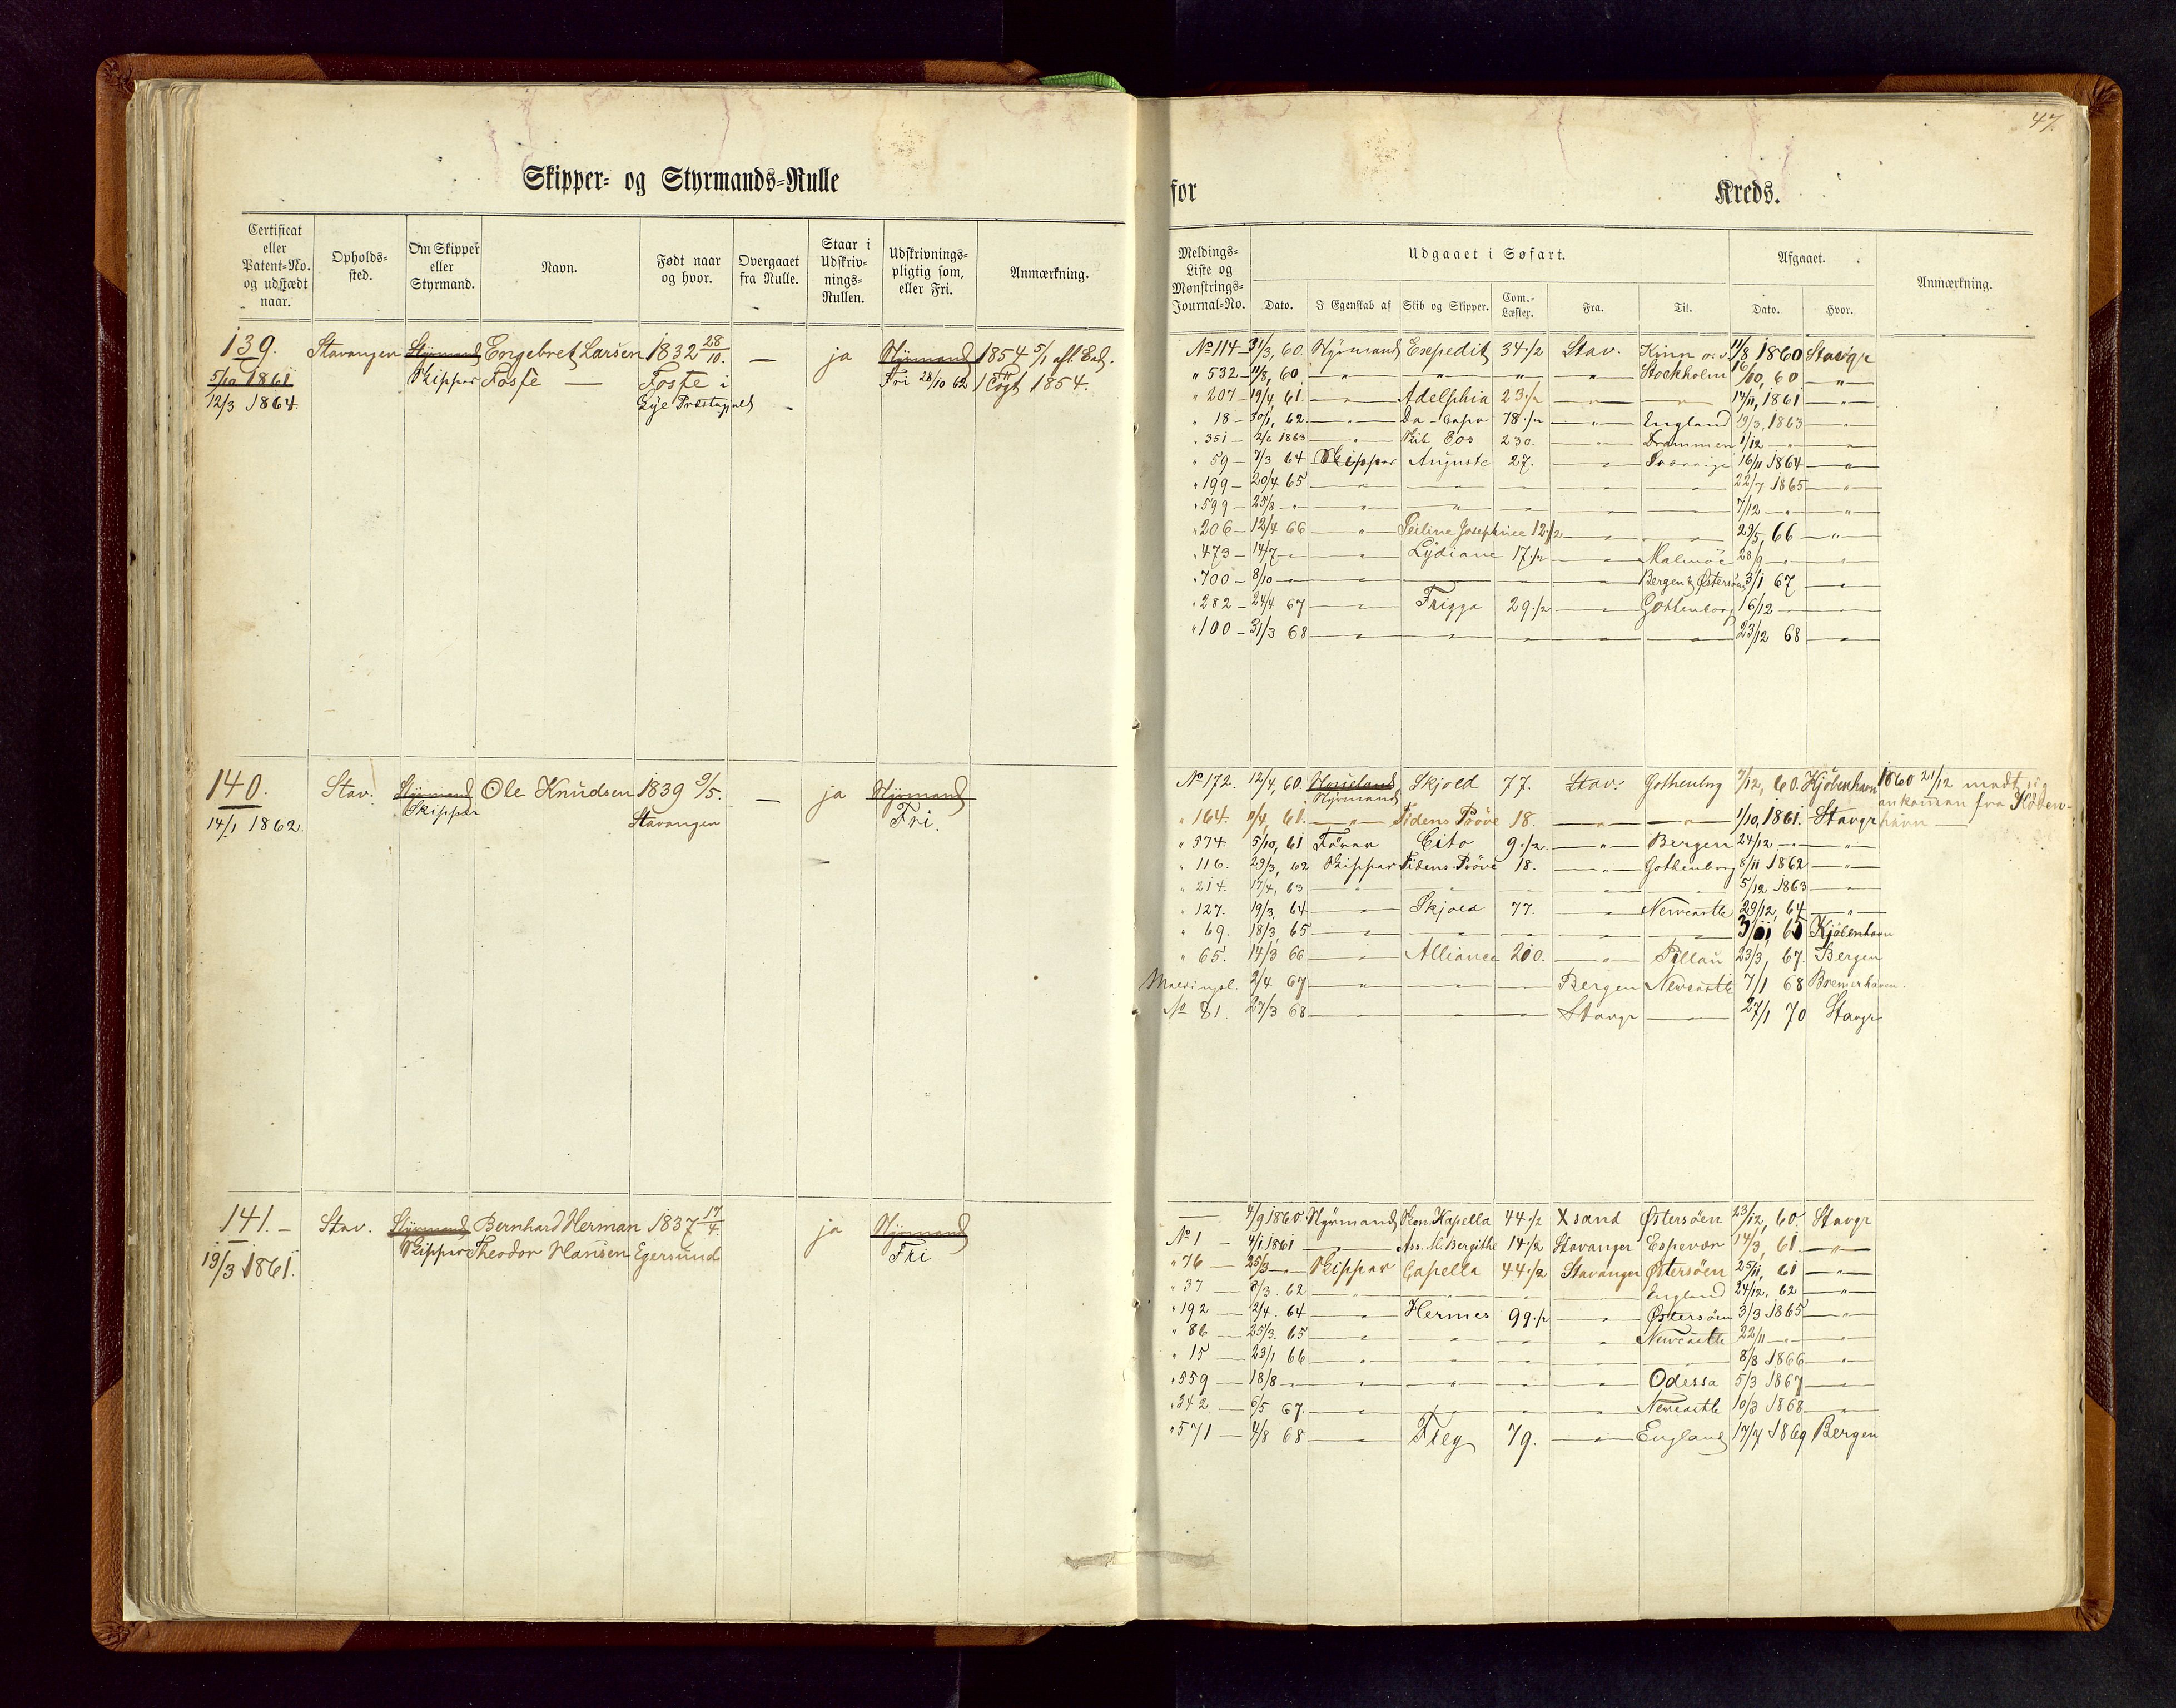 47.
Skipper- og Styrmands-Rulle
for Kreds.
Certificat eller Patent-No. og udstædt naar.
Opholds-sted.
Om Skipper eller Styrmand.
Navn.
Født naar og hvor.
Overgaaet fra Rulle.
Staar i Udskriv-nings-Rullen.
Udskrivnings-pligtig som, eller Fri.
Anmærkning.
139. Stavanger Styrmand Engebret Larsen 1832 28/10. — ja Styrmand 1854 5/1 afl. Ed.
5/10 1861 Skipper Fosse — Foste i Fri 28/10 62 1 Togt 1854.
12/3 1864. Præstegjeld —
140. Stav. Styrmand Ole Knudsen 1839 9/5. — ja Styrmand
14/1 1862. Skipper Stavanger Fri.
141. — Stav. Styrmand Bernhard Herman 1837 17/4. ja Styrmand
19/3 1861. Skipper Theodor Hansen Egersund Fri
Meldings-Liste og Mønstrings-Journal-No.
Udgaaet i Søfart.
Afgaaet.
Anmærkning.
Dato.
I Egenskab af
Skib og Skipper.
Com.-Læster.
Fra.
Til.
Dato.
Hvor.
No 114 — 31/3, 60. Styrmand Expedit 34 1/2 Stav. Kinn 11/8 1860 Stavgr
" 532 — 11/8, 60 — " — — " — " — " Stockholm 16/10, 60 — " —
" 207 — 19/4 61. — " — Adelphia 23 1/2 — " — — " — 14/11, 1861 — " —
" 18 — 30/1, 62 — " — 18 1/2 — " — England 19/3, 1863 — " —
" 351 — 2/6 1863 — " — Skib Eos 230. — " — Drammen 1/12 — " — — " —
" 59 — 7/3 64 Skipper Auguste 27. — " — Sverrige 16/11 1864 — " —
" 199 — 20/4 65 — " — — " — — " — — " — — " — 22/7 1865 — " —
" 599 — 25/8 — " — — " — — " — — " — — " — 7/12 — " — — " —
" 206 — 12/4 66 — " — Josephine 12 1/2 — " — — " — 29/5, 66 — " —
" 473 — 14/7 — " — — " — Lydiane 17 1/2 — " — Malmöe 28/9 — " — — " —
" 700 — 8/10 — " — — " — — " — — " — — " — Bergen & Østersöen 3/1 67 — " —
" 282 — 24/4 67 — " — Frigga 29 1/2 — " — Gothenborg 16/12 — " — — " —
" 100 — 31/3 68 — " — — " — — " — — " — — " — 23/12 68 — " —
No 172. 12/4, 60. Styrmand Skjold 77. Stav. Gothenbrg 7/12, 60. Kjöbenhavn 1860 21/12 meldt sig
ankommen fra Kjöben-
havn —
" 164. 11/4, 61. — " — Tidens Pröve 18. — " — — " — 1/10, 1861. Stavgr
" 574. 5/10, 61 Förer Cito 9 1/2. — " — Bergen 24/12 — " — — " —
" 116. 29/3, 62 Skipper Tidens Pröve 18. — " — Gothenborg 8/11 1862 — " —
" 214. 17/4, 63 — " — — " — — " — — " — — " — 5/12 1863 — " —
" 127. 19/3, 64 — " — Skjold 77. — " — Newcastle 29/12, 64 — " —
" 69. 18/3, 65 — " — — " — — " — — " — — " — 3/11, 65 Kjöbenhavn
" 65. 14/3 66 — " — Alliance 210. — " — Pillau 23/3, 67. Bergen
Meldingsl. 2/4 67 — " — — " — — " — Bergen Newcastle 7/1 68 Bremerhaven.
No 81. 27/3 68 — " — — " — — " — Stavgr — " — 27/1 70 Stavgr
— 4/9 1860 Styrmand Kapella 44 1/2 Xsand Østersöen 23/12, 60. Stavgr
No 1 — 4/1 1861 — " — Bergithe 14 1/2 Stavanger Espevær 14/3, 61 — " —
" 76 — 25/3 — " — Skipper Capella 44 1/2 Stavanger Østersöen 25/11, 61 — " —
" 37 — 8/3. 62 — " — — " — — " — — " — England 24/12, 62 — " —
" 192 — 2/4. 64 — " — Hermes 99 1/2 — " — Østersöen 3/3 1865 — " —
" 86 — 25/3. 65 — " — — " — — " — — " — Newcastle 22/11 — " — — " —
" 15 — 23/1 66 — " — — " — — " — — " — — " — 8/8 1866 — " —
" 559 — 18/8 — " — — " — — " — — " — — " — Odessa 5/3 1867 — " —
" 342 — 6/5 67. — " — — " — — " — — " — Newcastle 10/3 1868 — " —
" 571 — 4/8 68 — " — Frey 79. — " — England 17/7 1869 Bergen